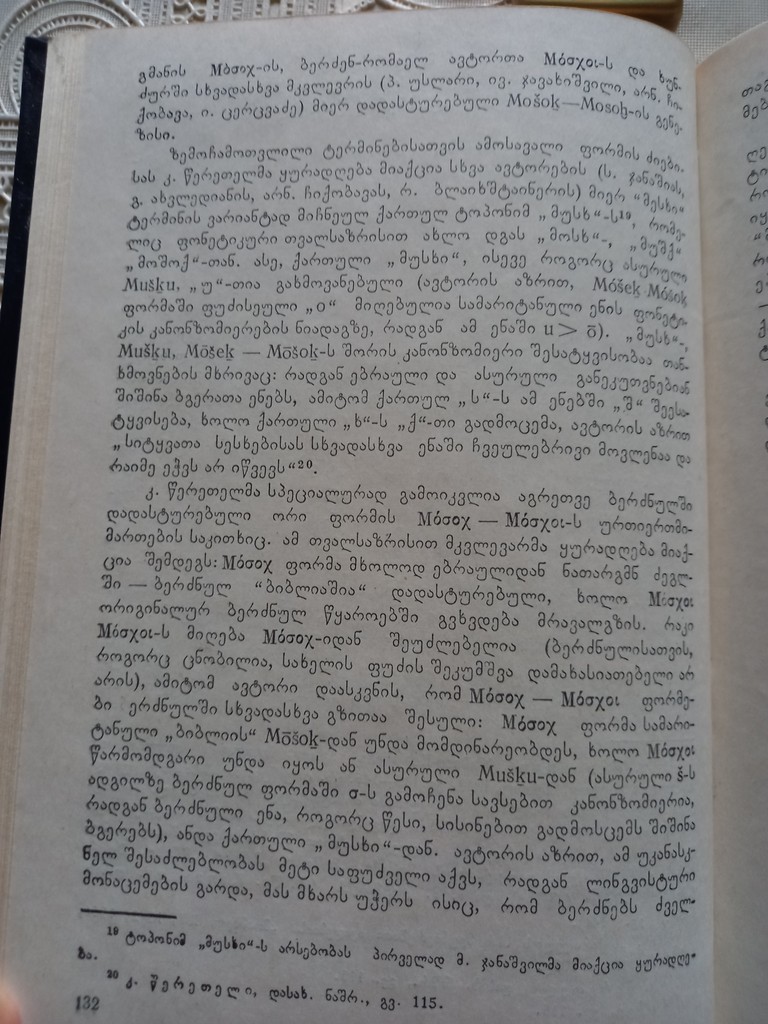 გმანის Мბσოχ-ის, ბერძენ-რომაელ ავტორთა Μόσχοι-ს და ხურ-
ძურში სხვადასხვა მკვლევრის (პ. უსლარი, ივ. ჯავახიშვილი, არნ. ჩი-
ქობავა, ი. ცერცვაძე) მიერ დადასტურებული Mošoḵ—Mosoḫ-ის გენე-
ზისი.
ზემოჩამოთვლილი ტერმინებისათვის ამოსავალი ფორმის ძიები-
სას კ. წერეთელმა ყურადღება მიაქცია სხვა ავტორების (ს. ჯანაშიას,
გ. ახვლედიანის, არნ. ჩიქობავას, რ. ბლაიხშტაინერის) მიერ "მესხი"
ტერმინის ვარიანტად მიჩნეულ ქართულ ტოპონიმ „მუსხ“-ს¹⁹, რომე-
ლიც ფონეტიკური თვალსაზრისით ახლო დგას „მოსხ“-, „მუშქ“
„მოშოქ“-თან. ასე, ქართული „მუსხი“, ისევე როგორც ასურული
Mušḵu, „უ“-თია გახმოვანებული (ავტორის აზრით, Móšeḵ Móšoḵ
ფორმაში ფუძისეული „ო“ მიღებულია სამარიტანული ენის ფონეტი-
კის კანონზომიერების ნიადაგზე, რადგან ამ ენაში u > ō). „მუსხ“-,
Mušḵu, Mōšeḵ — Mōšoḵ-ს შორის კანონზომიერი შესატყვისობაა თან-
ხმოვნების მხრივაც: რადგან ებრაული და ასურული განეკუთვნებიან
შიშინა ბგერათა ენებს, ამიტომ ქართულ „ს“-ს ამ ენებში „შ“ შეესა-
ტყვისება, ხოლო ქართული „ხ“-ს „ქ“-თი გადმოცემა, ავტორის აზრით
„სიტყვათა სესხებისას სხვადასხვა ენაში ჩვეულებრივი მოვლენაა და
რაიმე ეჭვს არ იწვევს“²⁰.
კ. წერეთელმა სპეციალურად გამოიკვლია აგრეთვე ბერძნულში
დადასტურებული ორი ფორმის Μόσοχ — Μόσχοι-ს ურთიერთმი-
მართების საკითხიც. ამ თვალსაზრისით მკვლევარმა ყურადღება მიაქ-
ცია შემდეგს: Μόσοχ ფორმა მხოლოდ ებრაულიდან ნათარგმნ ძეგლ-
ში — ბერძნულ "ბიბლიაშია" დადასტურებული, ხოლო Μόσχοι
ორიგინალურ ბერძნულ წყაროებში გვხვდება მრავალგზის. რაკი
Μόσχοι-ს მიღება Μόσοχ-იდან შეუძლებელია (ბერძნულისათვის,
როგორც ცნობილია, სახელის ფუძის შეკუმშვა დამახასიათებელი არ
არის), ამიტომ ავტორი დაასკვნის, რომ Μόσοχ — Μόσχοι ფორმე-
ბი ერძნულში სხვადასხვა გზითაა შესული: Μόσοχ ფორმა სამარი-
ტანული „ბიბლიის" Mōšoḵ-დან უნდა მომდინარეობდეს, ხოლო Μόσχοι
წარმომდგარი უნდა იყოს ან ასურული Mušḵu-დან (ასურული š-ს
ადგილზე ბერძნულ ფორმაში σ-ს გამოჩენა სავსებით კანონზომიერია,
რადგან ბერძნული ენა, როგორც წესი, სისინებით გადმოსცემს შიშინა
ბგერებს), ანდა ქართული „მუსხი“-დან. ავტორის აზრით, ამ უკანასკ-
ნელ შესაძლებლობას მეტი საფუძველი აქვს, რადგან ლინგვისტური
მონაცემების გარდა, მას მხარს უჭერს ისიც, რომ ბერძნებს ძველ-
¹⁹ ტოპონიმ „მუსხი“-ს არსებობას პირველად მ. ჯანაშვილმა მიაქცია ყურადღე-
ბა.
²⁰ კ. წერეთელი, დასახ. ნაშრ., გვ. 115.
132